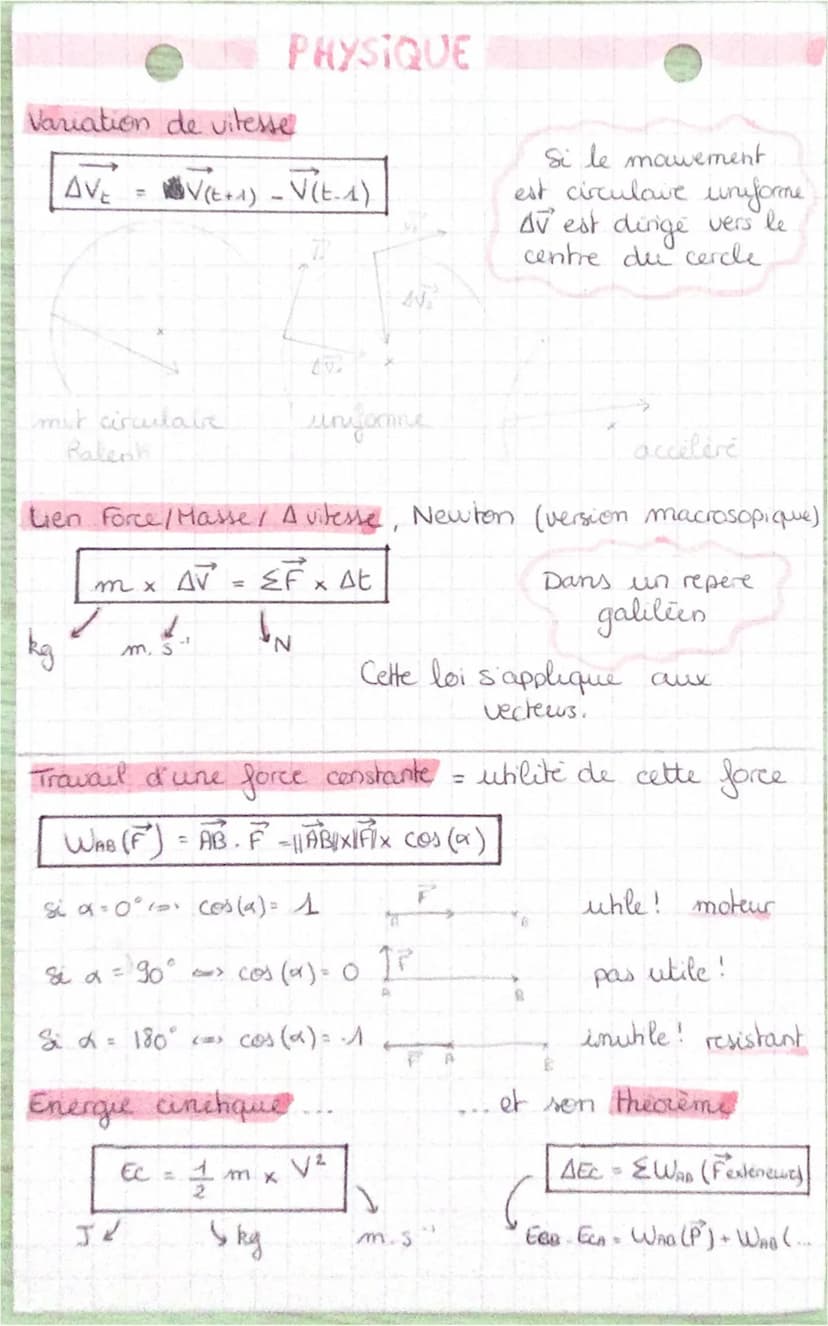 PHYSIQUE
Variation de vitesse
ΔVt = V(t+1) - V(t-1)
Si le mouvement
est circulaire uniforme
ΔV est dirigé vers le
centre du cercle
ΔV
mvt circulaire
Ralenti
uniforme
accéléré
Lien Force/Masse/ Δ vitesse, Newton (version macrosopique)
m x ΔV = ΣF x Δt
kg
m.s⁻¹
N
Dans un repère
galiléen
Cette loi s'applique aux
vecteurs.
Travail d'une force constante = utilité de cette force
WAB(F) = AB . F = ||AB||x||F||x cos(α)
Si α = 0° <=> cos(α) = 1
F
A
B
utile! moteur
Si α = 90° <=> cos(α) = 0
F
A
B
pas utile!
Si α = 180° <=> cos(α) = -1
F
A
B
inutile! resistant
Energie cinétique...
...et son théorème
Ec = 1/2 m x V²
J
kg
m.s⁻¹
ΔEc = ΣWAB (Fexterieures)
EcB - EcA = WAB(P) + WAB(...